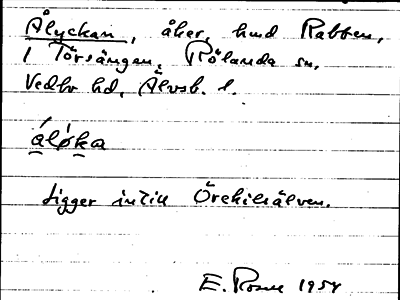 Ålyckan, åker, hmd Rabben,
1 Törsängen, Rölanda sn,
Vedbo hd, Älvsb. l.
áló̱ka
Ligger intill Örekilsälven.
E. Rosell 1958